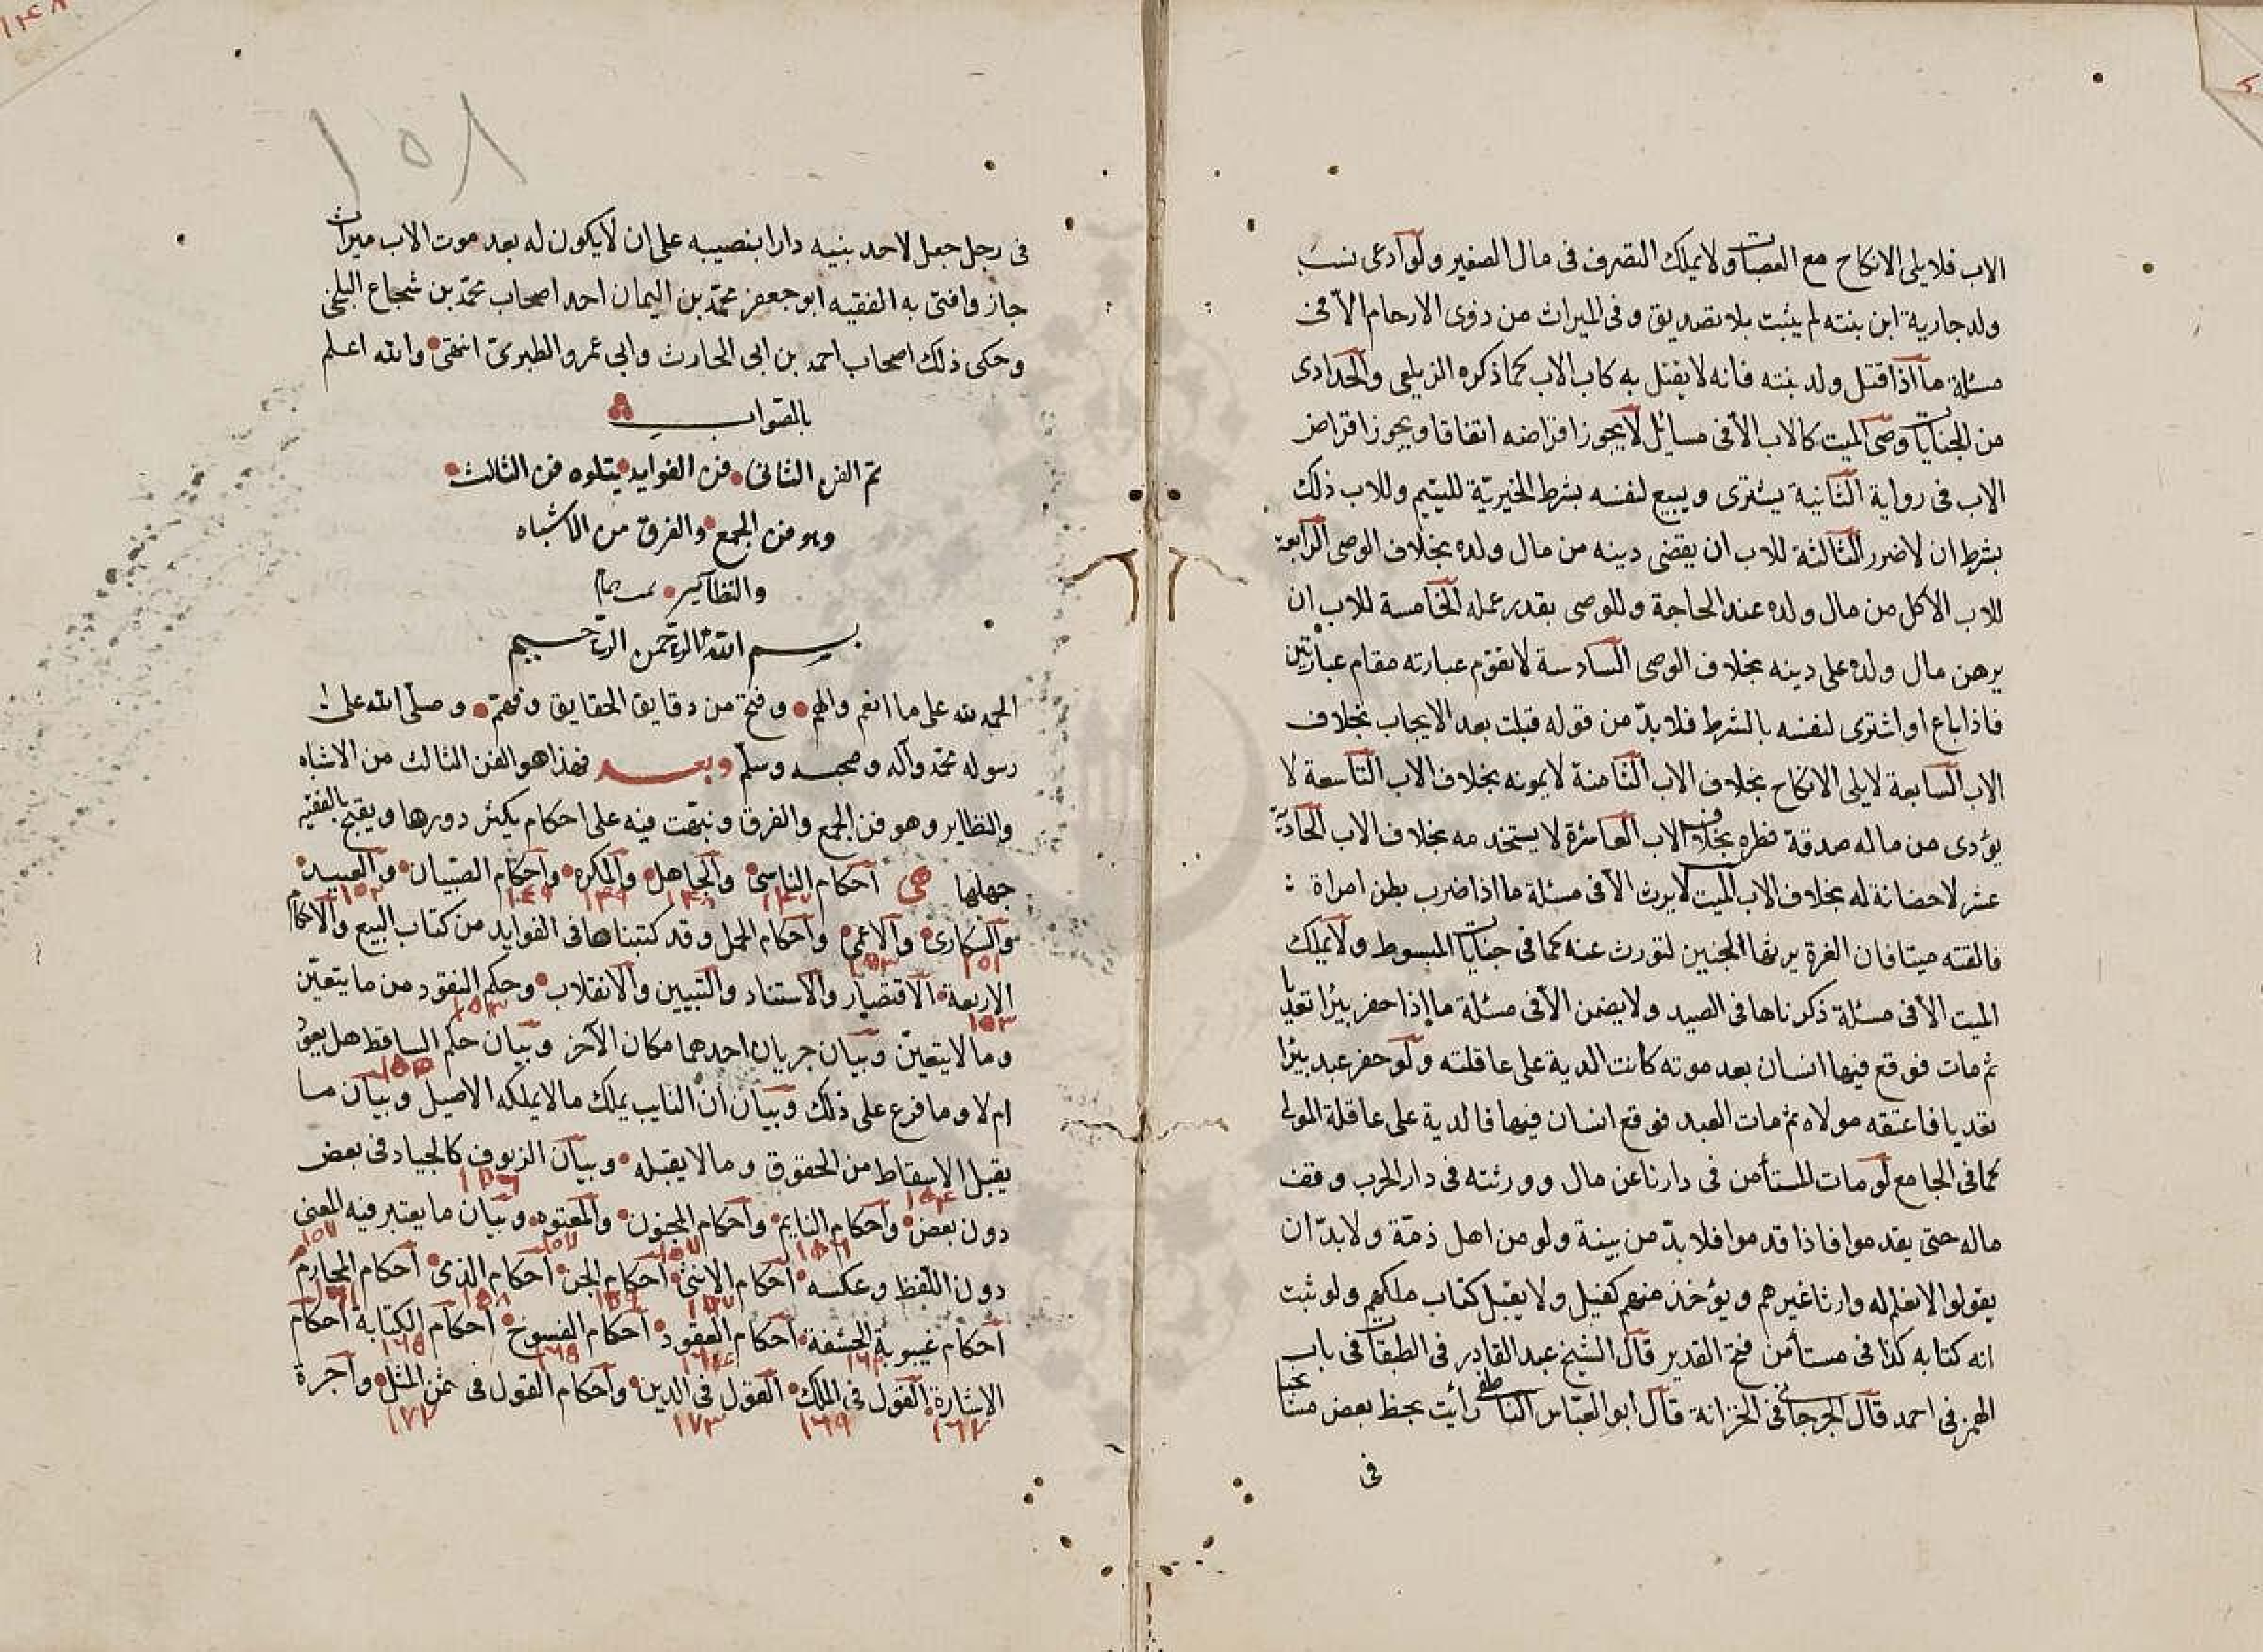 الاب فلا يلى الانكاح مع العصبات ولا يملك التصرف فى مال الصغير ولو ادعى نسب
ولد جارية ابن بنته لم يثبت بلا تصديق وفى الميراث من ذوى الارحام الا فى
مسئلة ما اذا قتل ولد بنته فانه لا يقتل به كاب الاب كما ذكره الزيلعى والحدادى
من الجنايات وصى الميت كالاب الا فى مسائل لا يجوز اقراضه اتفاقا ويجوز اقراض
الاب فى رواية الثانية يشترى ويبيع لنفسه بشرط الخيرية لليتيم وللاب ذلك
بشرط ان لا ضرر الثالثة للاب ان يقضى دينه من مال ولده بخلاف الوصى الرابعة
للاب الاكل من مال ولده عند الحاجة وللوصى بقدر عمله الخامسة للاب ان
يرهن مال ولده على دينه بخلاف الوصى السادسة لا تقوم عبارته مقام عبارتين
فاذا باع او اشترى لنفسه بالشرط فلا بدّ من قوله قبلت بعد الايجاب بخلاف
الاب السابعة لا يلى الانكاح بخلاف الاب الثامنة لا يمونه بخلاف الاب التاسعة لا
يؤدى من ماله صدقة فطره بخلاف الاب العاشرة لا يستخدمه بخلاف الاب الحادية
عشر لا حضانة له بخلاف الاب الميت لا يرث الا فى مسئلة ما اذا ضرب بطن امراة
فالقته ميتا فان الغرة يرثها الجنين لتورث عنه كما فى جنايات المبسوط ولا يملك
الميت الا فى مسئلة ذكرناها فى الصيد ولا يضمن الا فى مسئلة ما اذا حفر بيرا تعديا
ثم مات فوقع فيها انسان بعد موته كانت الدية على عاقلته ولو حفر عبد بيرا
تعديا فاعتقه مولاه ثم مات العبد فوقع انسان فيها فالدية على عاقلة المولى
كما فى الجامع لو مات المستأمن فى دارنا عن مال وورثته فى دار الحرب وقف
ماله حتى يقدموا فاذا قدموا فلا بدّ من بينة ولو من اهل ذمّة ولا بدّ ان
يقولوا لا نعلم له وارثا غيرهم ويؤخذ منهم كفيل ولا يقبل كتاب ملكهم ولو ثبت
انه كتابه كذا فى مستأمن فتح القدير قال الشيخ عبد القادر فى الطبقات فى باب
الهمز فى احمد قال الجرجانى فى الخزانة قال ابو العبّاس الناطفى رأيت بخط بعض مشايخنا
فى
١٤٨
١٥٨
فى رجل جعل لاحد بنيه دارا بنصيبه على ان لا يكون له بعد موت الاب ميراث
جاز وافتى به الفقيه ابو جعفر محمّد بن اليمان احد اصحاب محمّد بن شجاع البلخى
وحكى ذلك اصحاب احمد بن ابى الحارث وابى عمرو الطبرىّ انتهى والله اعلم
بالصّواب
تم الفن الثانى فن الفوايد يتلوه فن الثالث
وهو فن الجمع والفرق من الاشباه
والنظاير
بسم الله الرّحمن الرّحيم
الحمد لله على ما انعم والهم وفتح من دقايق الحقايق وفهّم وصلّى الله على
رسوله محمّد وآله وصحبه وسلّم وبعد فهذا هو الفن الثالث من الاشباه
والنظاير وهو فن الجمع والفرق ونبّهت فيه على احكام يكثر دورها ويقبح بالفقيه
جهلها هى احكام الناسى والجاهل والمكره واحكام الصّبيان والعبيد
١٤٧ ١٤٨ ١٤٩ ١٤٩ ١٥٢
والسكارى والاعمى واحكام الحمل وقد كتبناها فى الفوايد من كتاب البيع والاحكام
١٥١ ١٥٣
الاربعة الاقتصار والاستناد والتبيين والانقلاب وحكم النقود من ما يتعيّن
١٥٣ ١٥٣
وما لا يتعيّن وبيان جريان احدهما مكان الآخر وبيان حكم الساقط هل يعود
١٥٥
ام لا وما فرع على ذلك وبيان ان النايب يملك ما لا يملكه الاصيل وبيان ما
يقبل الاسقاط من الحقوق وما لا يقبله وبيان الزيوف كالجياد فى بعض
١٥٤ ١٥٦
دون بعض واحكام النايم واحكام المجنون والمعتوه وبيان ما يعتبر فيه المعنى
١٥٦ ١٥٧ ١٥٧ ١٥٧
دون اللّفظ وعكسه احكام الانثى احكام الجن احكام الذمى احكام المحارم
١٥٧ ١٥٩ ١٥٨ ١٦١
احكام غيبوبة الحشفة احكام العقود احكام الفسوخ احكام الكتابة احكام
١٦٥ ١٦٥
الاشارة القول فى الملك القول فى الدين واحكام القول فى ثمن المثل واجرة
١٦٢ ١٦٩ ١٧٣ ١٧٢